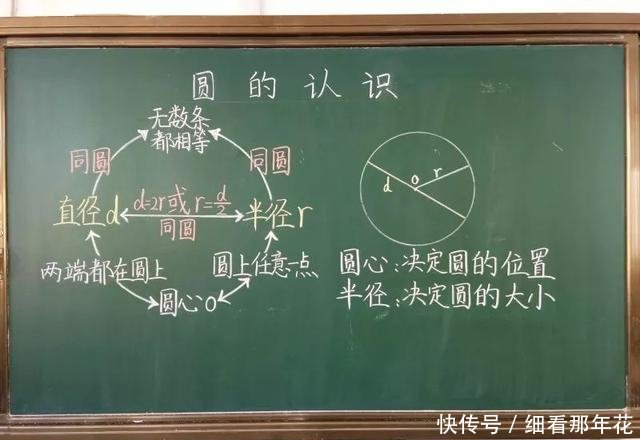 圆的认识
无数条
都相等
同圆
同圆
直径d
d=2r或r=d/2
同圆
半径r
两端都在圆上
圆上任意一点
圆心o
d
o
r
圆心:决定圆的位置
半径:决定圆的大小
快传号/细看那年花